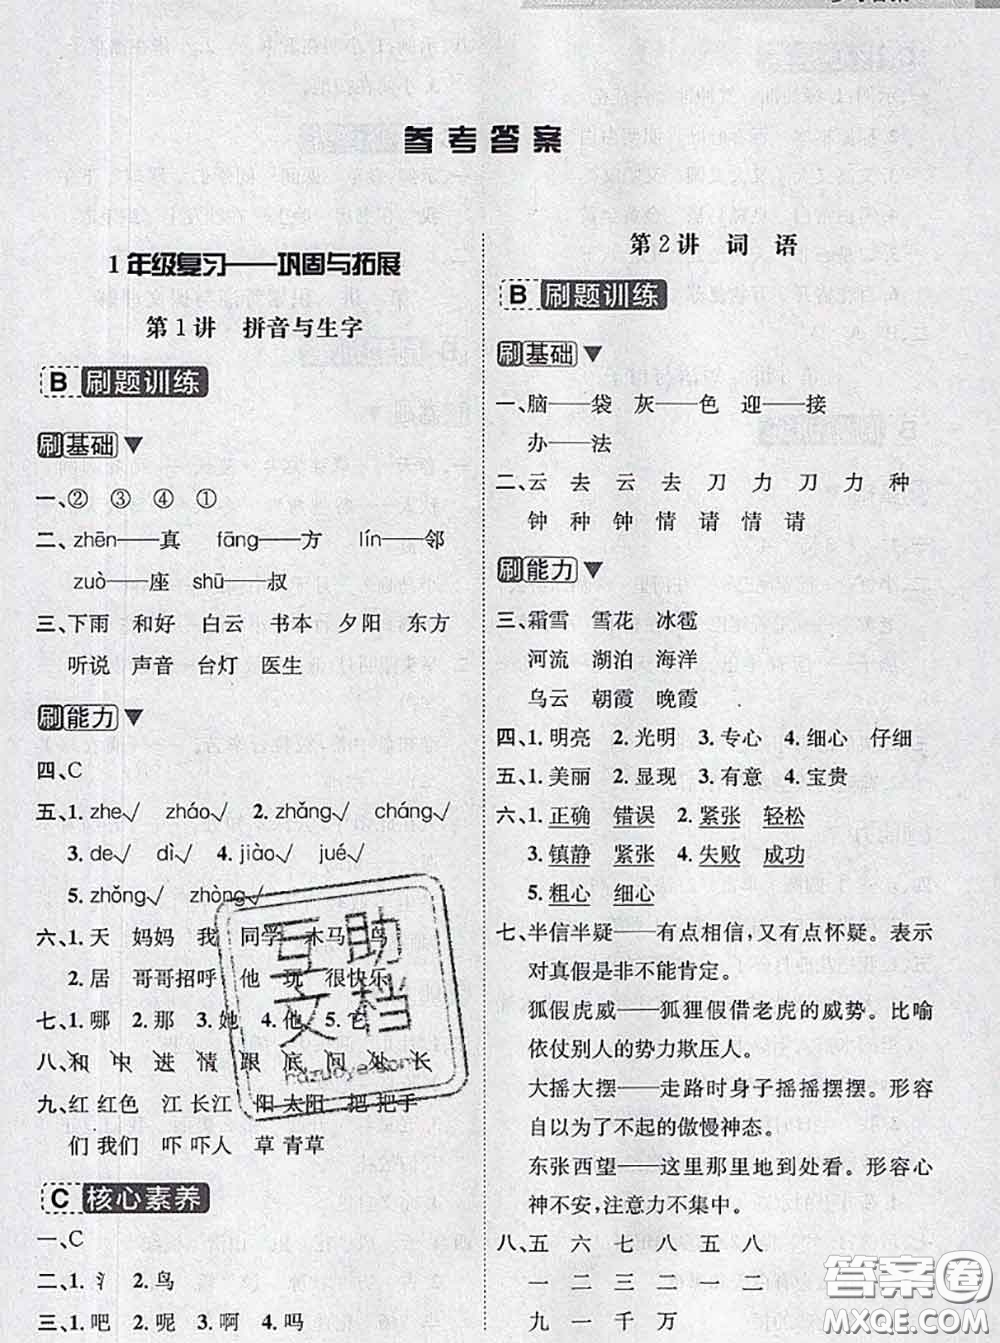 参考答案
1年级复习——巩固与拓展
第1讲 拼音与生字
B 刷题训练
刷基础▼
一、② ③ ④ ①
二、zhēn——真 fāng——方 lín——邻
zuò——座 shū——叔
三、下雨 和好 白云 书本 夕阳 东方
听说 声音 台灯 医生
刷能力▼
四、C
五、1. zhe√ zháo√ 2. zhǎng√ cháng√
3. de√ dì√ 4. jiào√ jué√
5. zhǒng√ zhòng√
六、1. 天 妈妈 我 同学 木马 鸟
2. 居 哥哥招呼 他 玩 很快乐
七、1. 哪 2. 那 3. 她 4. 他 5. 它
八、和 中 进 情 跟 底 间 处 长
九、红 红色 江 长江 阳 太阳 把 把手
们 我们 吓 吓人 草 青草
C 核心素养
一、C
二、1. 氵 2. 鸟
三、1. 吧 2. 呢 3. 啊 4. 吗
第2讲 词语
B 刷题训练
刷基础▼
一、脑——袋 灰——色 迎——接
办——法
二、云 去 云 去 刀 力 刀 力 种
钟 种 钟 情 请 情 请
刷能力▼
三、霜雪 雪花 冰雹
河流 湖泊 海洋
乌云 朝霞 晚霞
四、1. 明亮 2. 光明 3. 专心 4. 细心 仔细
五、1. 美丽 2. 显现 3. 有意 4. 宝贵
六、1. 正确 错误 2. 紧张 轻松
3. 镇静 紧张 4. 失败 成功
5. 粗心 细心
七、半信半疑——有点相信,又有点怀疑。表示
对真假是非不能肯定。
狐假虎威——狐狸假借老虎的威势。比喻
依仗别人的势力欺压人。
大摇大摆——走路时身子摇摇摆摆。形容
自以为了不起的傲慢神态。
东张西望——这里那里地到处看。形容心
神不安,注意力不集中。
八、五 六 七 八 五 八
一 二 三 二 一 二
九 一 千 万
互助
文档
hdzuoye.com
答案圈
MXQE.COM